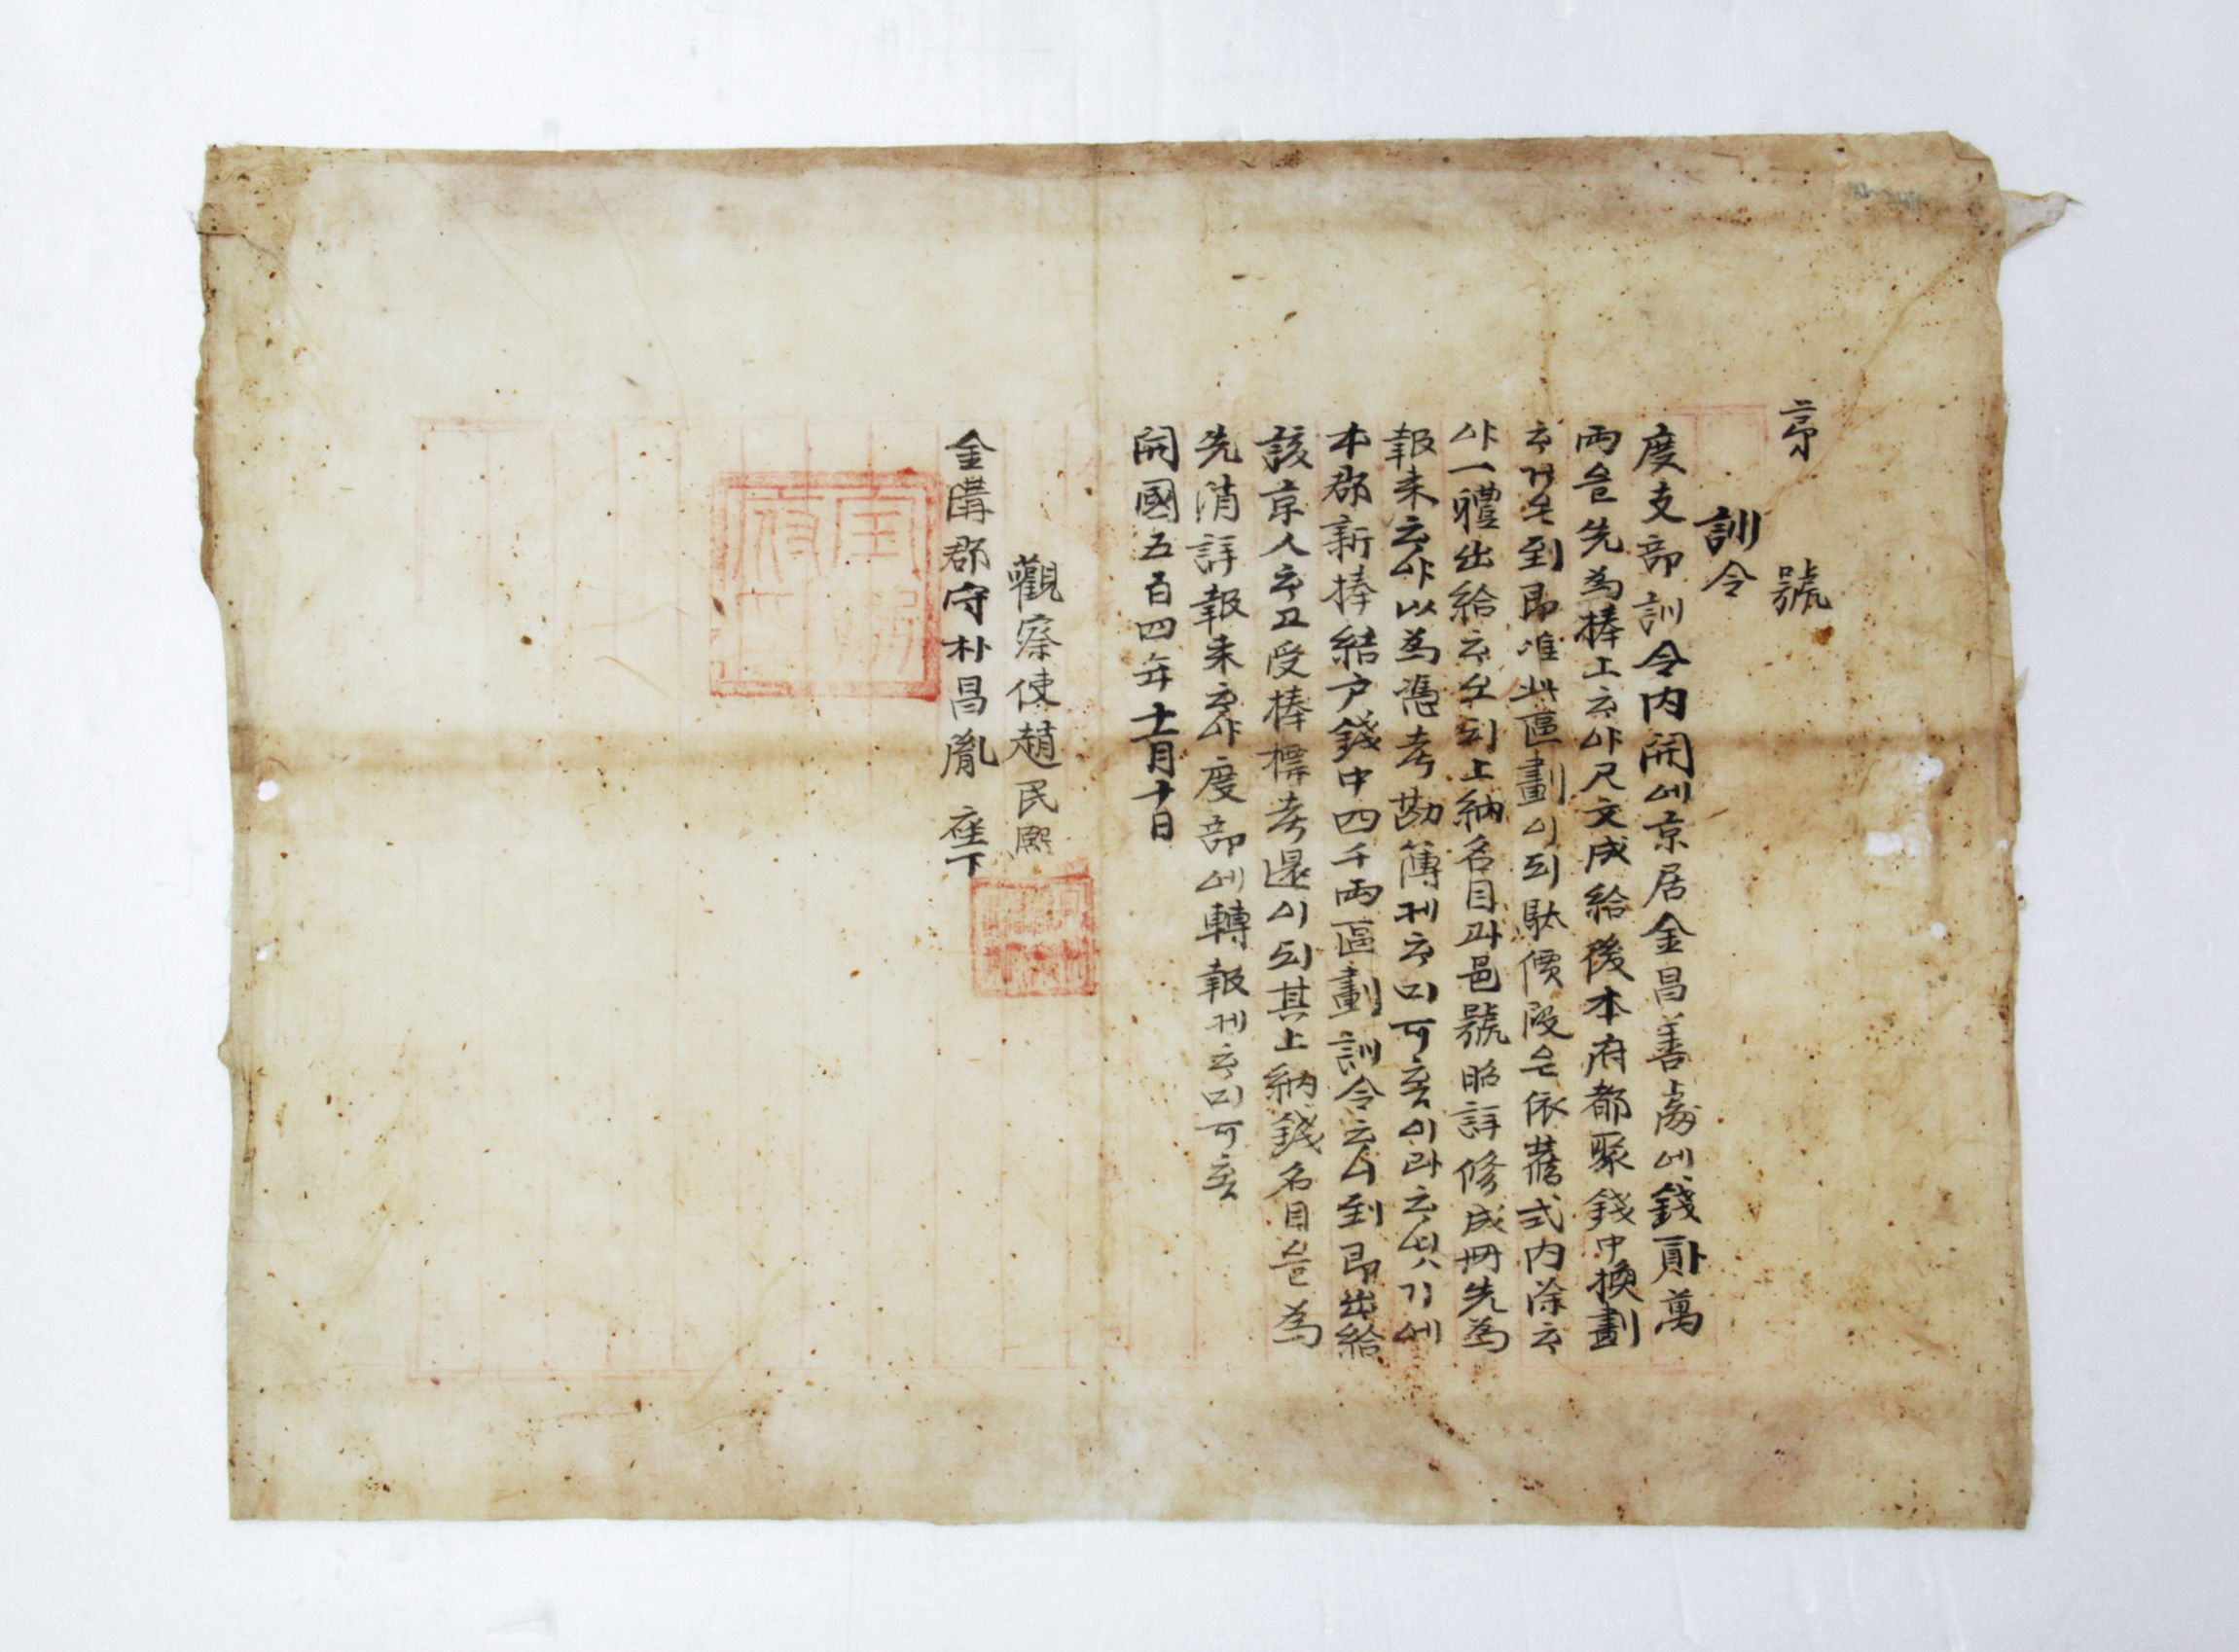 第 號
訓令
度支部訓令內開에京居金昌善處에錢貳萬
兩을先爲捧上ᄒᆞ야尺文成給後本府都聚錢中換劃
ᄒᆞ거온到卽準此區劃이되駄價段은依舊式內除ᄒᆞ
야一軆出給ᄒᆞ오되上納名目과邑號昭詳修成冊先爲
報来ᄒᆞ야以爲憑考勘簿케ᄒᆞ미可홈이라ᄒᆞ얏기에
本郡新捧結戶錢中四千兩區劃訓令ᄒᆞ니到卽出給
該京人ᄒᆞ고受捧標考還이되其上納錢名目을爲
先消詳報来ᄒᆞ야度部에轉報케ᄒᆞ미可홈
開國五百四年十一月十日
觀察使趙民熙
金溝郡守朴昌胤 座下